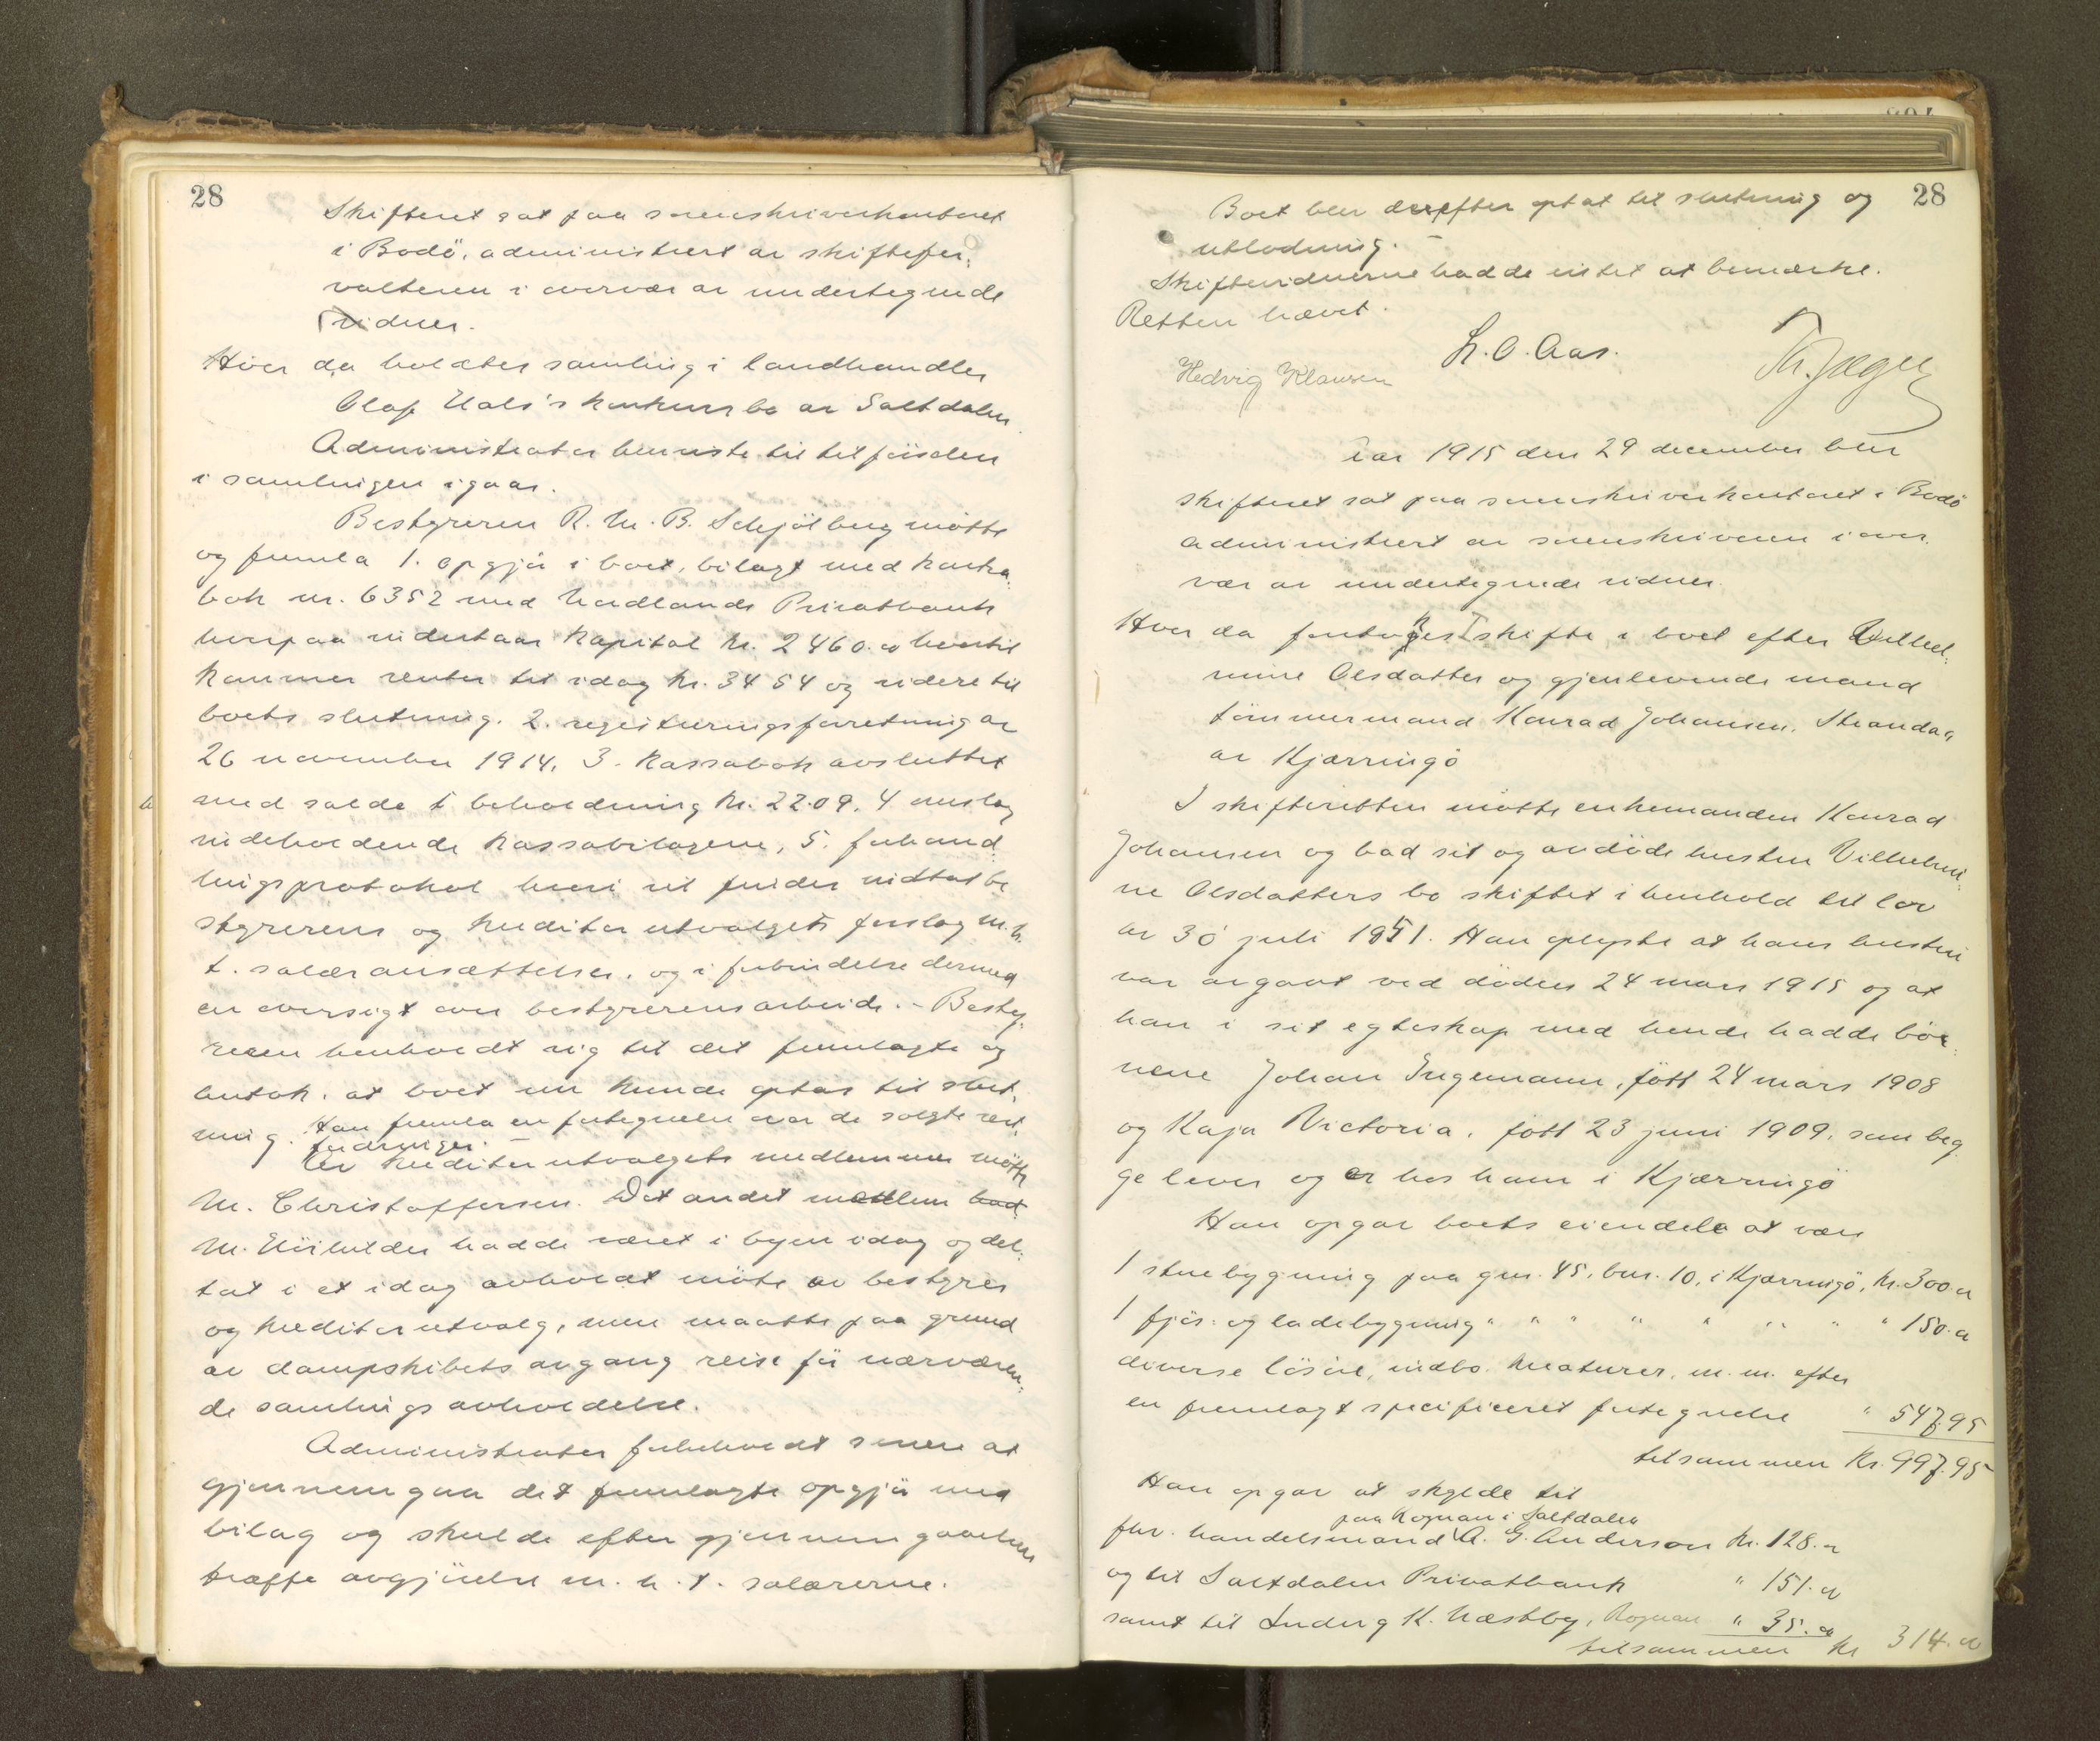 28
Skifteret sat paa sorenskriverkontoret
i Bodö, administrert av skiftefor-
valteren i overvær av undertegnede
vidner.
Hvor da holdtes samling i landhandler
Olaf Hals's konkursbo av Saltdalen
Administrator henviste til tilförselen
i samlingen igaar.
Bestyreren R. M. B. Schjölberg mötte
og fremla 1. opgjör i boet, bilagt med kontra-
bok nr. 6352 med Nordlands Privatbank
hvorpaa indestaar kapital kr. 2460.00 hvortil
kommer renter til idag kr. 34 54 og videre til
boets slutning. 2. registreringsforretning av
26 november 1914, 3. Kassabok avsluttet
med saldo i beholdning kr. 22.09, 4 omslag
indeholdende kassabilagene, 5. forhand-
lingsprotokol hvori vil findes indtat be
styrerens og kreditorutvalgets forslag m.h.
t. salæransættelser, og i forbindelse dermed
en oversigt over bestyrerens arbeide. - Besty-
reren henholdt sig til det fremlagte og
antok, at boet nu kunde optas til slut-
ning. Han fremla en fortegnelse over de solgte rest-
fordringer. -
Av kreditorutvalgets medlemmer mötte
M. Christoffersen. Det andet medlem
M. hadde været i byen idag og del-
tat i et idag avholdt möte av bestyrer
og kreditorutvalg, men maatte paa grund
av dampskibets avgang reise för nærværen-
de samlings avholdelse.
Administrator forbeholdt senere at
gjennemgaa det fremlagte opgjör med
bilag og skulde efter gjennemgaaelsen
træffe avgjörelse m. h. t. salærerne.
28
Boet blev derefter optat til slutning og
utlodning. -
Skiftevidnerne hadde intet at bemærke.
Retten hævet.
L. O. Aas.
Th. Jæger
Hedvig Klausen
Aar 1915 den 29 december blev
skifteret sat paa sorenskriverkontoret i Bodö
administrert av sorenskriveren i over-
vær av undertegnede vidner.
Hvor da foretoges skifte i boet efter Vilhel-
mine Olsdatter og gjenlevende mand
tömmermand Konrad Johansen, Strandaa
av Kjærringö
I skifteretten mötte enkemanden Konrad
Johansen og bad sit og avdöde hustru Vilhelmi-
ne Olsdatters bo skiftet i henhold til lov
av 30 juli 1851. Han oplyste at hans hustru
var avgaat ved döden 24 mars 1915 og at
han i sit egteskap med hende hadde bör-
nene Johan Ingemann, född 24 mars 1908
og Kaja Victoria, född 23 juni 1909, som beg-
ge lever og er hos ham i Kjærringö
Han opgav boets eiendele at være
1 stuebygning paa gnr. 45, bnr. 10, i Kjærringö, kr. 300.00
1 fjös- og ladebygning " " " " " " " " 150.00
diverse lösöre, indbo, kreaturer, m. m. efter
en fremlagt specificeret fortegnelse " 547.95
tilsammen Kr. 997.95
Han opgav at skylde til
paa Rognan i Saltdalen
fhv. handelsmand A. G. Anderson kr. 128.00
og til Saltdalen Privatbank " 151.00
samt til Ludvig K. Næstby, Rognan " 35.00
tilsammen kr 314.00